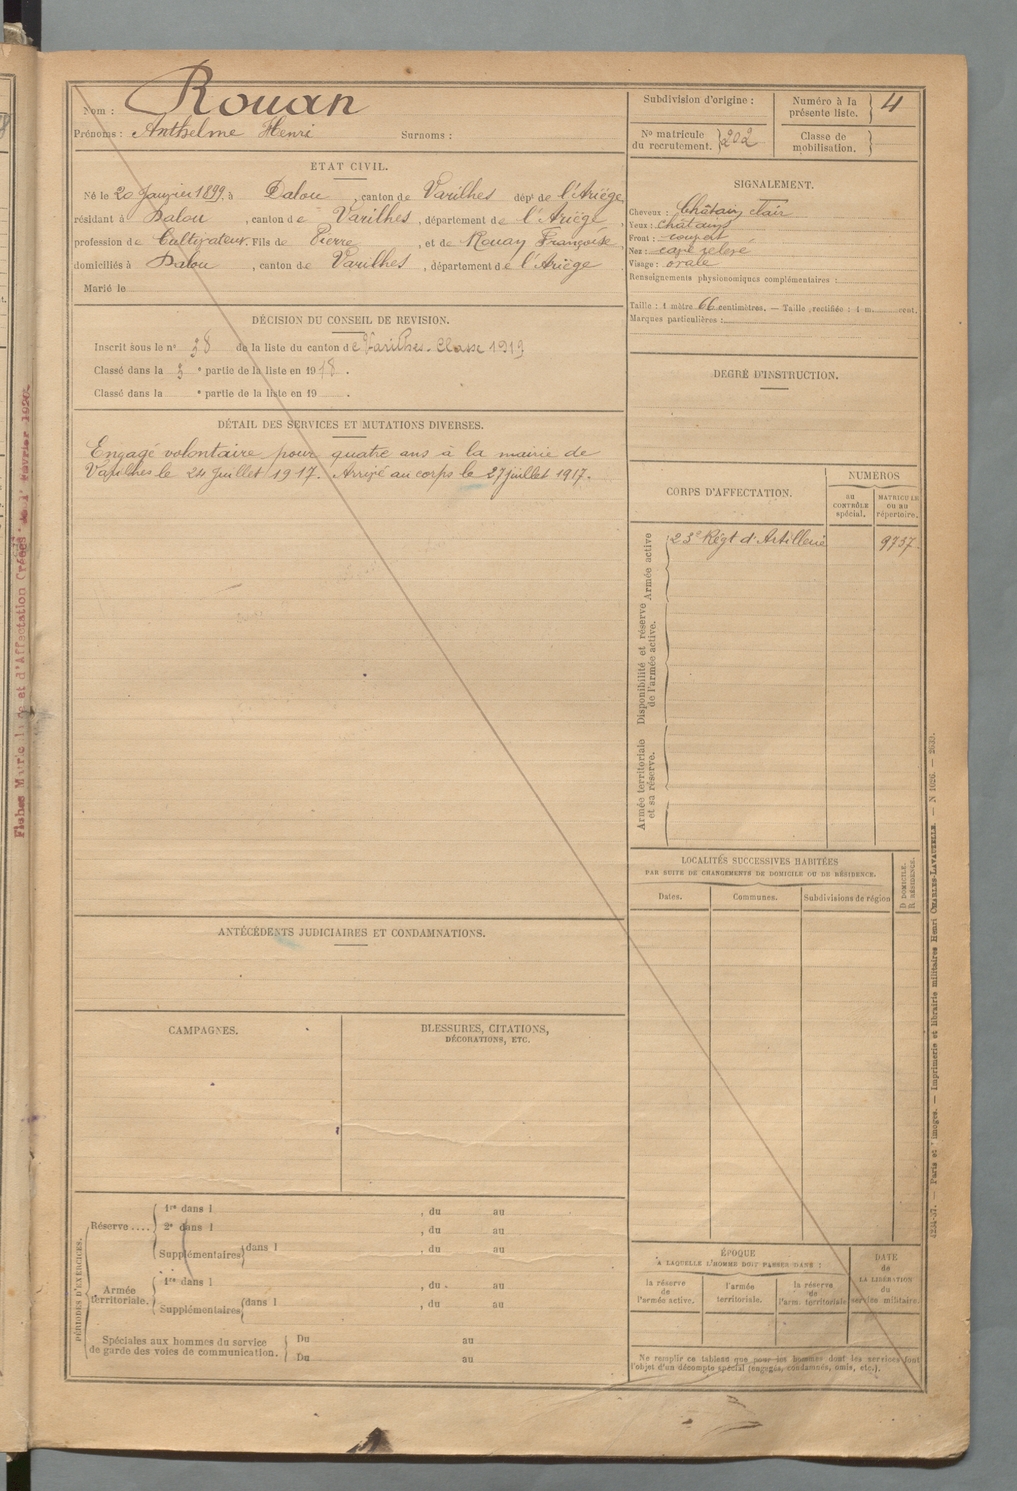 Nom : Rouan
Prénoms : Anthelme Henri Surnoms :
ETAT CIVIL.
Né le 20 Janvier 1899, à Dalou, canton de Varilhes dépt de l'Ariège,
résidant à Dalou, canton de Varilhes, département de l'Ariège,
profession de Cultivateur. Fils de Pierre, et de Rouan Françoise,
domiciliés à Dalou, canton de Varilhes, département de l'Ariège
Marié le
DÉCISION DU CONSEIL DE REVISION.
Inscrit sous le n° 38 de la liste du canton de Varilhes - Classe 1919
Classé dans la 3 e partie de la liste en 1918.
Classé dans la e partie de la liste en 19 .
DÉTAIL DES SERVICES ET MUTATIONS DIVERSES.
Engagé volontaire pour quatre ans à la mairie de
Varilhes le 24 Juillet 1917. Arrivé au corps le 27 juillet 1917.
ANTÉCÉDENTS JUDICIAIRES ET CONDAMNATIONS.
CAMPAGNES.
BLESSURES, CITATIONS,
DÉCORATIONS, ETC.
PÉRIODES D'EXERCICES.
Réserve ....
1re dans l , du au
2e dans l , du au
Supplémentaires dans l , du au
Armée
territoriale.
1re dans l , du au
Supplémentaires dans l , du au
Spéciales aux hommes du service
de garde des voies de communication.
Du au
Du au
Subdivision d'origine :
Numéro à la
présente liste. 4
N° matricule
du recrutement. 202
Classe de
mobilisation.
SIGNALEMENT.
Cheveux : Châtain clair
Yeux : châtains
Front :
Nez : cave relevé
Visage : ovale
Renseignements physionomiques complémentaires :
Taille : 1 mètre 66 centimètres. — Taille rectifiée : 1 m. cent.
Marques particulières :
DEGRÉ D'INSTRUCTION.
CORPS D'AFFECTATION.
NUMEROS
au
CONTRÔLE
spécial.
MATRICULE
OU AU
répertoire.
Armée active
23e Régt d'Artillerie 9737
Disponibilité et réserve
de l'armée active.
Armée territoriale
et sa réserve.
LOCALITÉS SUCCESSIVES HABITÉES
PAR SUITE DE CHANGEMENTS DE DOMICILE OU DE RÉSIDENCE.
Dates. Communes. Subdivisions de région
D DOMICILE.
R RÉSIDENCE.
ÉPOQUE
A LAQUELLE L'HOMME DOIT PASSER DANS :
la réserve
de
l'armée active.
l'armée
territoriale.
la réserve
de
l'arm. territoriale
DATE
de
LA LIBÉRATION
du
service militaire.
Ne remplir ce tableau que pour les hommes dont les services font
l'objet d'un décompte spécial (engagés, condamnés, omis, etc.).
Paris et Limoges. — Imprimerie et librairie militaires Henri CHARLES-LAVAUZELLE. — N 1026.
Fiches Matricule et d'Affectation Créées le 1er Février 1926.